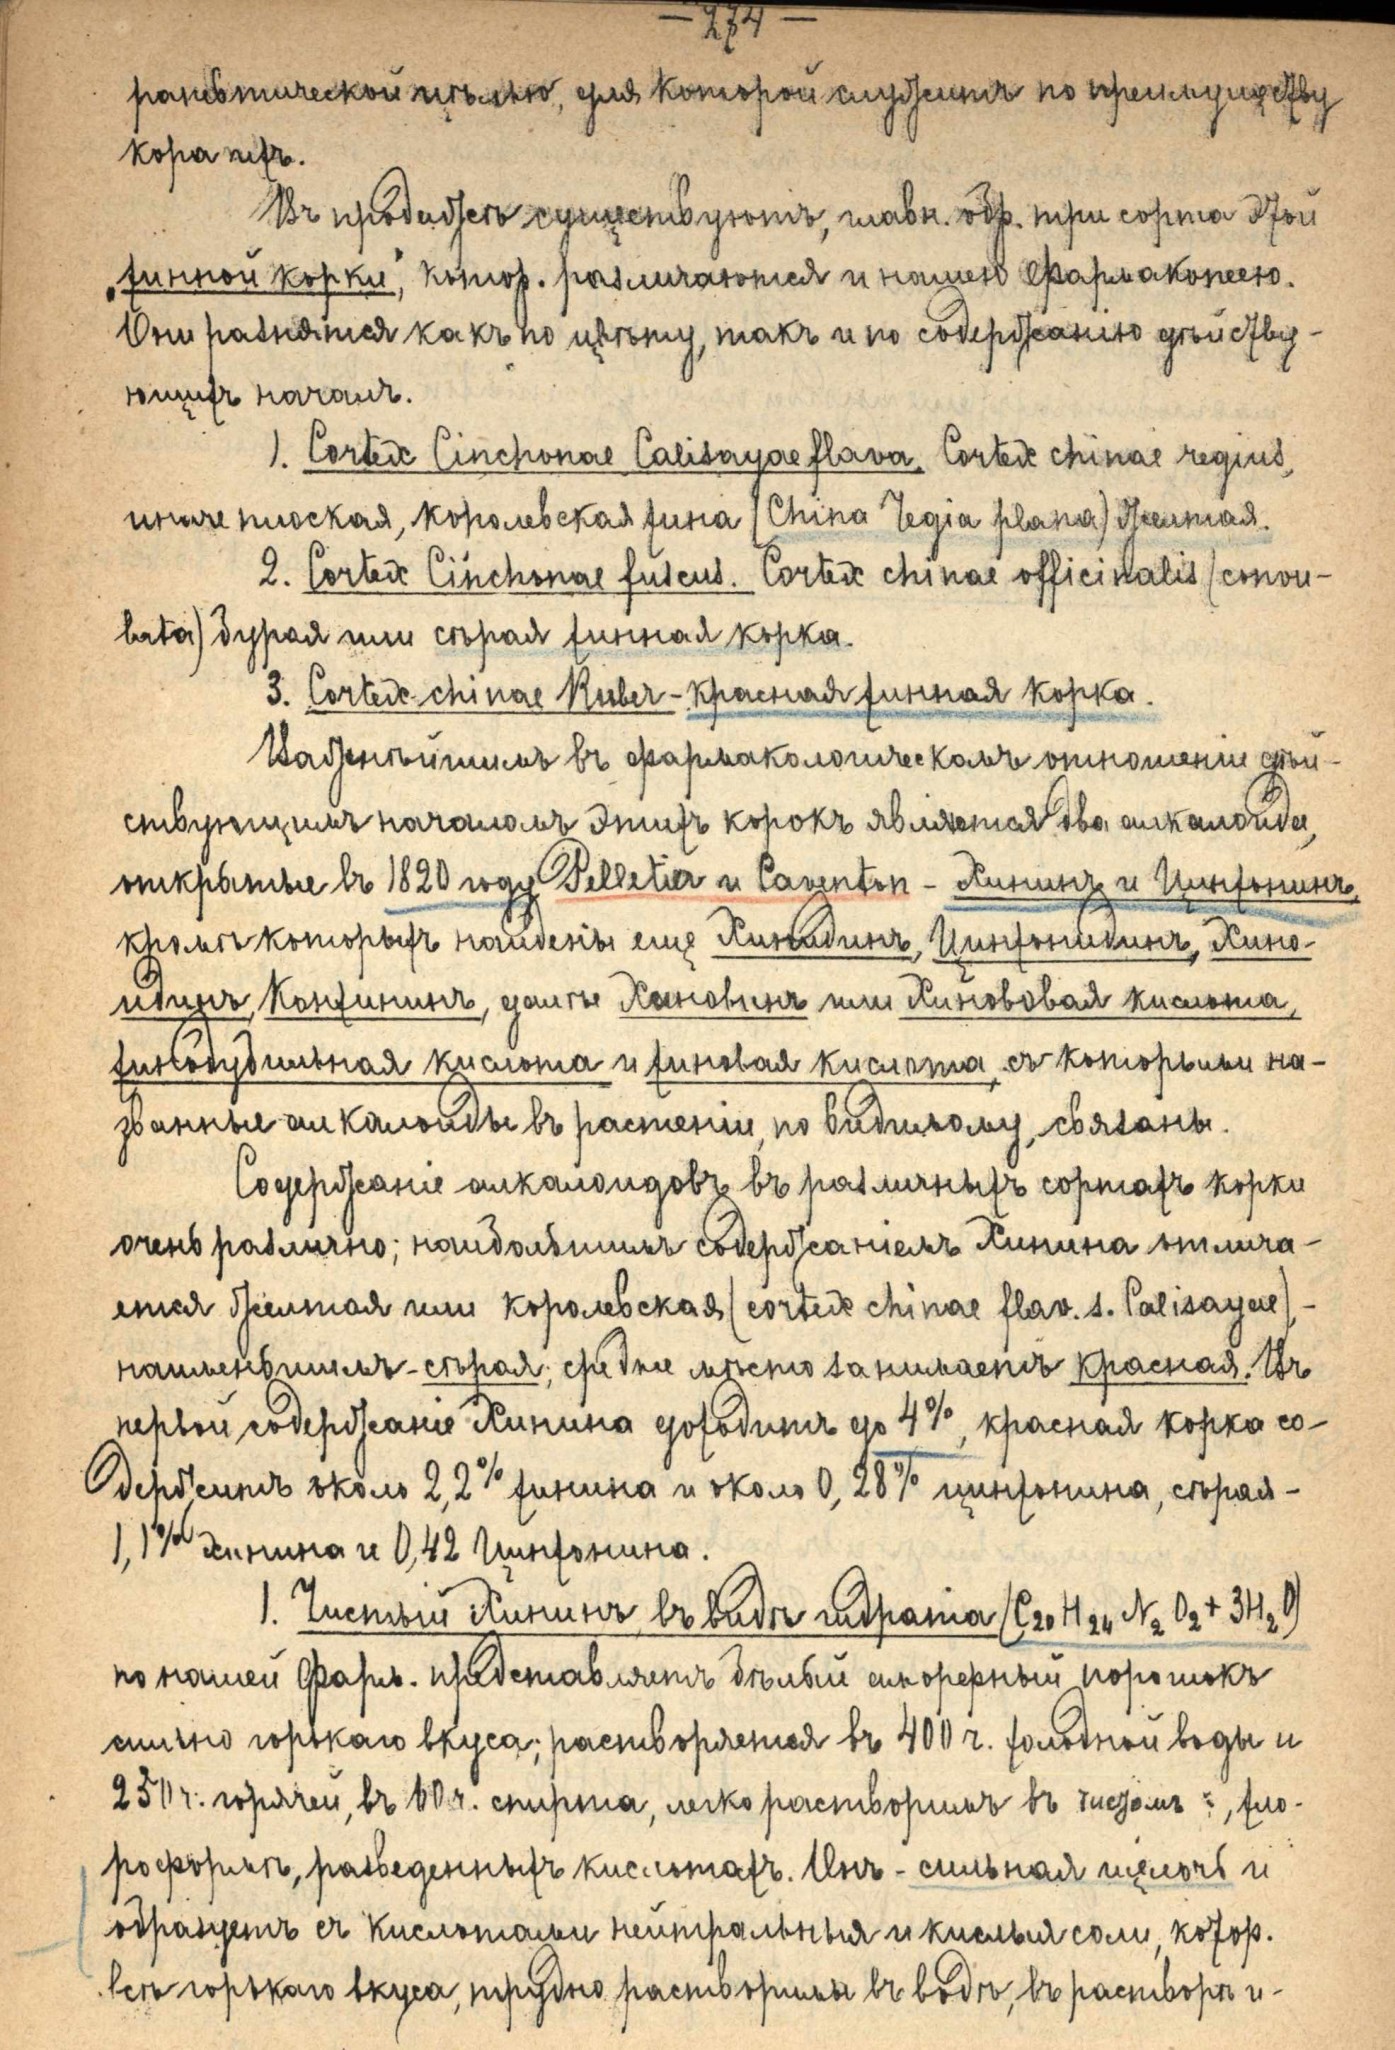 — 274 —
рапевтической цѣлью, для которой служитъ по преимуществу
кора ихъ.
Въ продажѣ существуютъ, главн. обр. три сорта этой
„хинной корки“, котор. различаются и нашею Фармакопеею.
Они разнятся какъ по цвѣту, такъ и по содержанію дѣйству-
ющихъ началъ.
1. Cortex Cinchonae Calisayae flava. Cortex chinae regius,
иначе плоская, королевская хина (China regia plana) желтая.
2. Cortex Cinchonae fuscus. Cortex chinae officinalis (convo-
luta) бурая или сѣрая хинная корка.
3. Cortex chinae Ruber - красная хинная корка.
Важнѣйшимъ въ фармакологическомъ отношеніи дѣй-
ствующимъ началомъ этихъ корокъ являются два алкалоида,
открытые въ 1820 году Pelletier и Caventon - Хининъ и Цинхонинъ,
кромѣ которыхъ найдены еще Хинидинъ, Цинхонидинъ, Хино-
идинъ, Конхининъ, далѣе Хиновинъ или Хинововая кислота,
хинодубильная кислота и хиновая кислота, съ которыми на-
званные алкалоиды въ растеніи, по видимому, связаны.
Содержаніе алкалоидовъ въ различныхъ сортахъ корки
очень различно; наибольшимъ содержаніемъ Хинина отлича-
ется желтая или королевская (cortex chinae flav. s. Calisayae), -
наименьшимъ - сѣрая; средне мѣсто занимаетъ красная. Въ
первой содержаніе Хинина доходитъ до 4%, красная корка со-
держитъ около 2,2% хинина и около 0,28% цинхонина, сѣрая -
1,1% хинина и 0,42 Цинхонина.
1. Чистый Хининъ въ видѣ гидрата (C₂₀H₂₄N₂O₂ + 3H₂O)
по нашей Фарм. представляетъ бѣлый аморфный порошокъ
сильно горькаго вкуса; растворяется въ 400 ч. холодной воды и
250 ч. горячей, въ 60 ч. спирта, легко растворимъ въ чистомъ, хло-
роформѣ, разведенныхъ кислотахъ. Онъ - сильная щелочь и
образуетъ съ кислотами нейтральныя и кислыя соли, котор.
всѣ горькаго вкуса, трудно растворимы въ водѣ, въ растворѣ и-